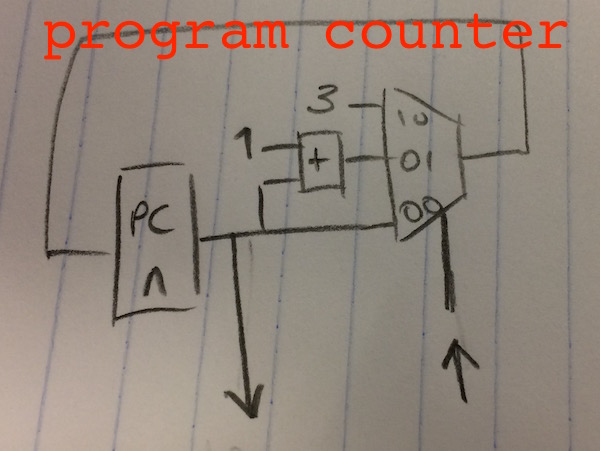 program counter
3
10
1
+
01
00
PC